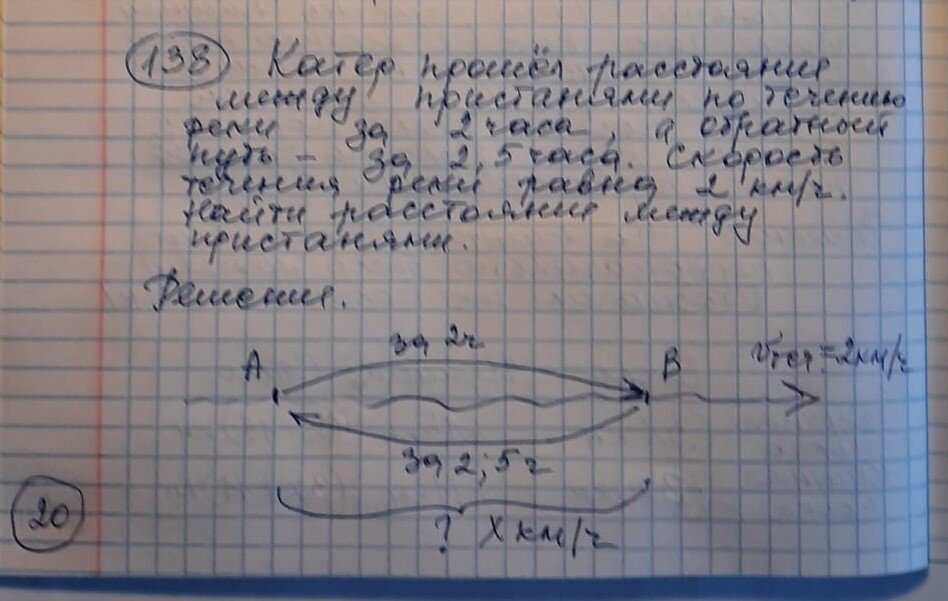 138 Катер прошёл расстояние
между пристанями по течению
реки за 2 часа, а обратный
путь - за 2,5 часа. Скорость
течения реки равна 2 км/ч.
Найти расстояние между
пристанями.
Решение.
за 2ч
A B Vтеч=2км/ч
за 2,5 ч
20
? X км/ч